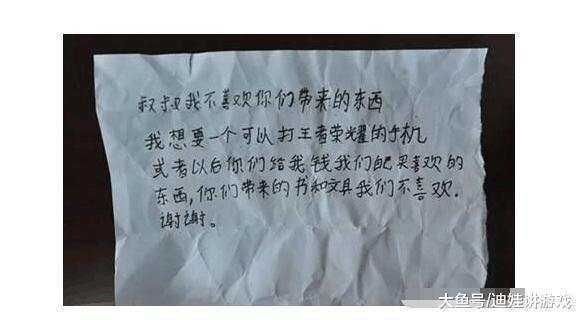 叔叔我不喜欢你们带来的东西
我想要一个可以打王者荣耀的手机
或者以后你们给我钱我们自己买喜欢的
东西,你们带来的书和文具我们不喜欢.
谢谢。
大鱼号/迪娃讲游戏